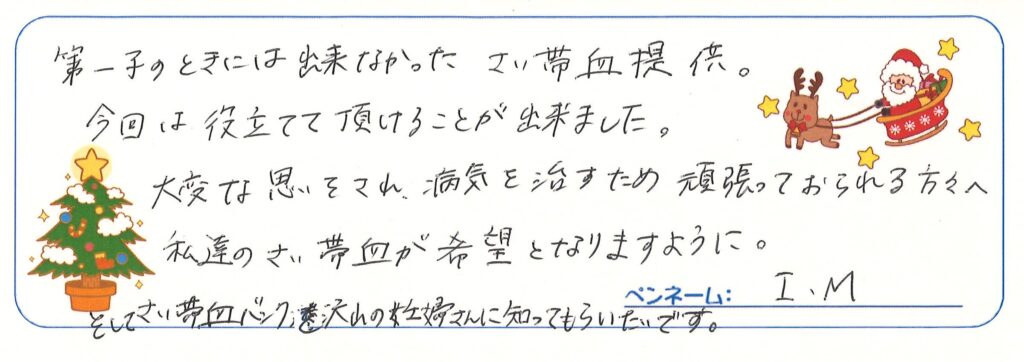 第一子のときには出来なかった さい帯血提供。
今回は役立てて頂けることが出来ました。
大変な思いをされ、病気を治すため 頑張っておられる方々へ
私達のさい帯血が希望となりますように。
ペンネーム: I.M
そしてさい帯血バンク 沢山の妊婦さんに知ってもらいたいです。